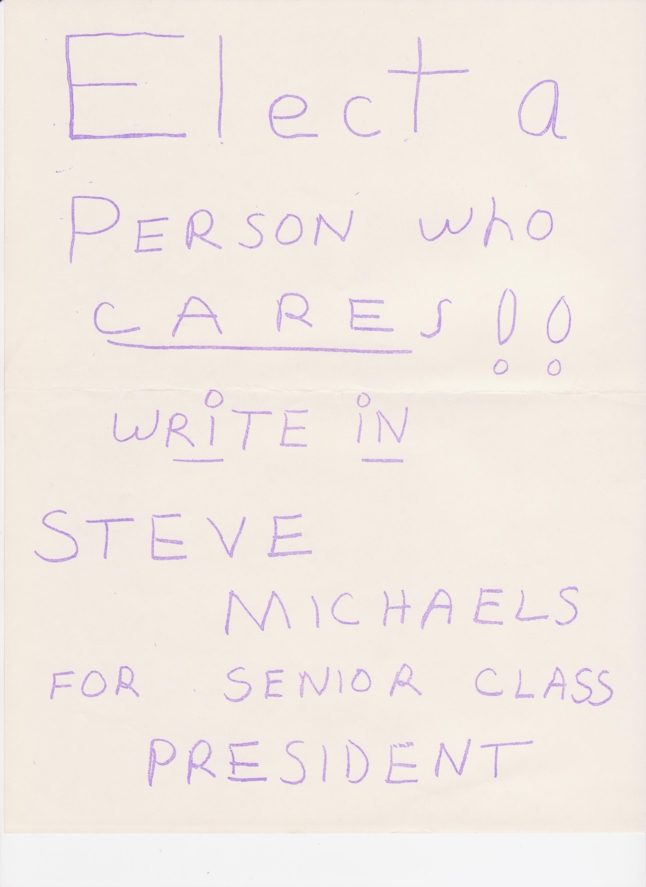 Elect a
PERSON who
CARES!!
WRiTE iN
STEVE
MICHAELS
FOR SENIOR CLASS
PRESIDENT